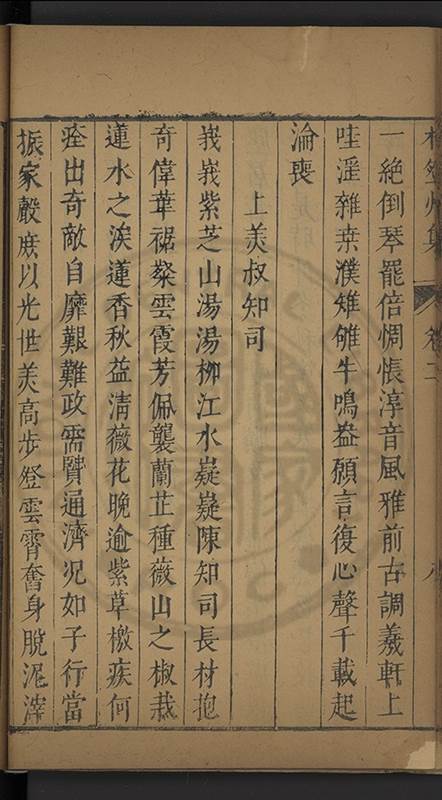 卷二
一絕倒琴罷倍惆悵淳音風雅前古調羲軒上
哇淫雜桒濮雉雊牛鳴盎願言復心聲千載起
淪喪
上美叔知司
峩峩紫芝山湯湯柳江水嶷嶷陳知司長材抱
奇偉華裾粲雲霞芳佩襲蘭芷種薇山之椒栽
蓮水之涘蓮香秋益清薇花晚逾紫草檄疾何
痊出奇敵自靡艱難政需賢通濟况如子行當
振家聲庶以光世美高步登雲霄奮身脫泥滓